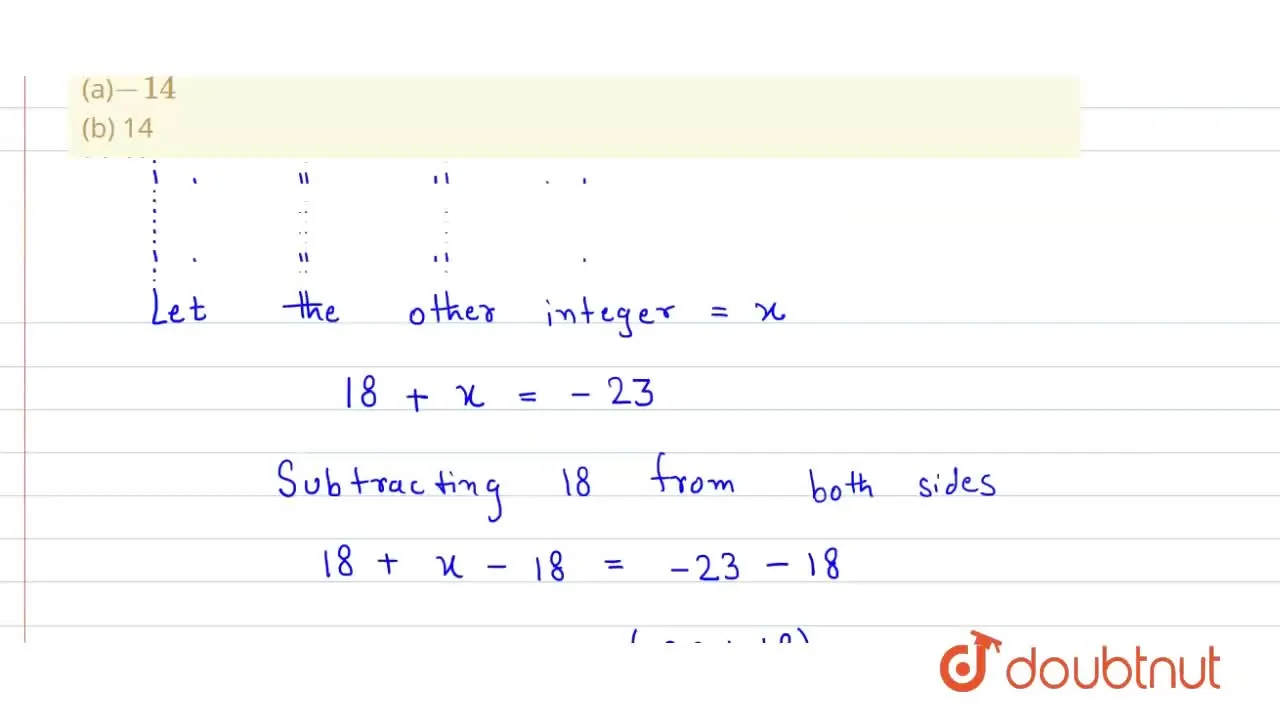 (a)−14
(b) 14
Let the other integer = x
18 + x = - 23
Subtracting 18 from both sides
18 + x - 18 = -23 - 18
doubtnut